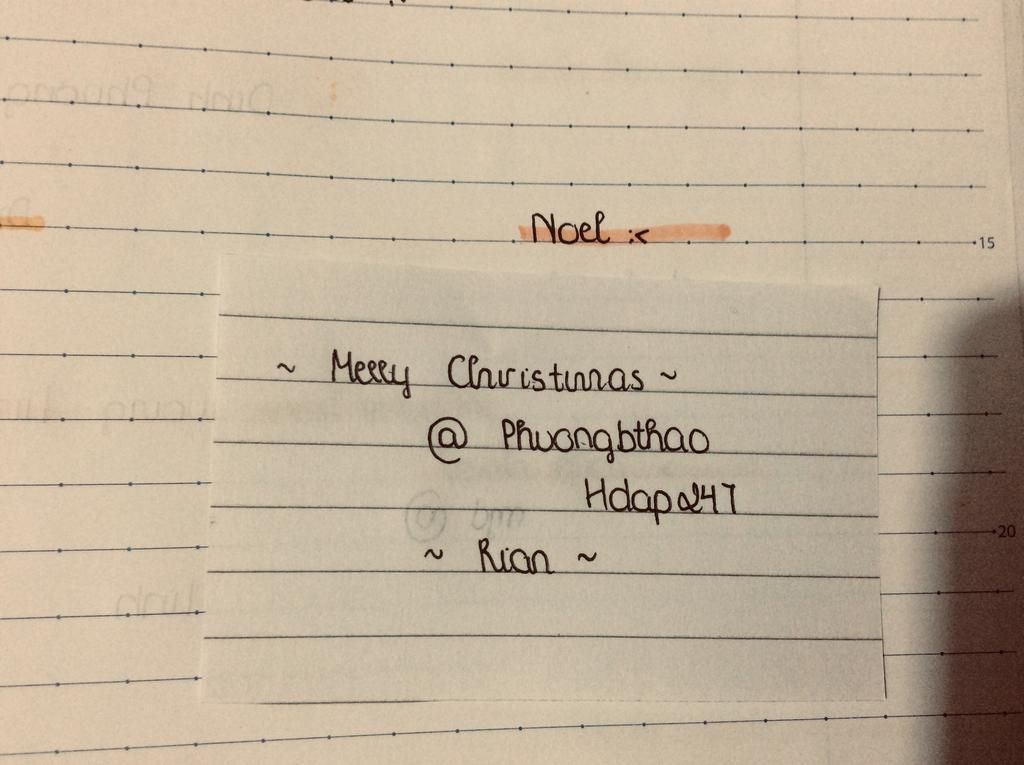 Noel :<
15
~ Merry Christmas ~
@ Phuongbthao
Hdap247
~ Rian ~
20